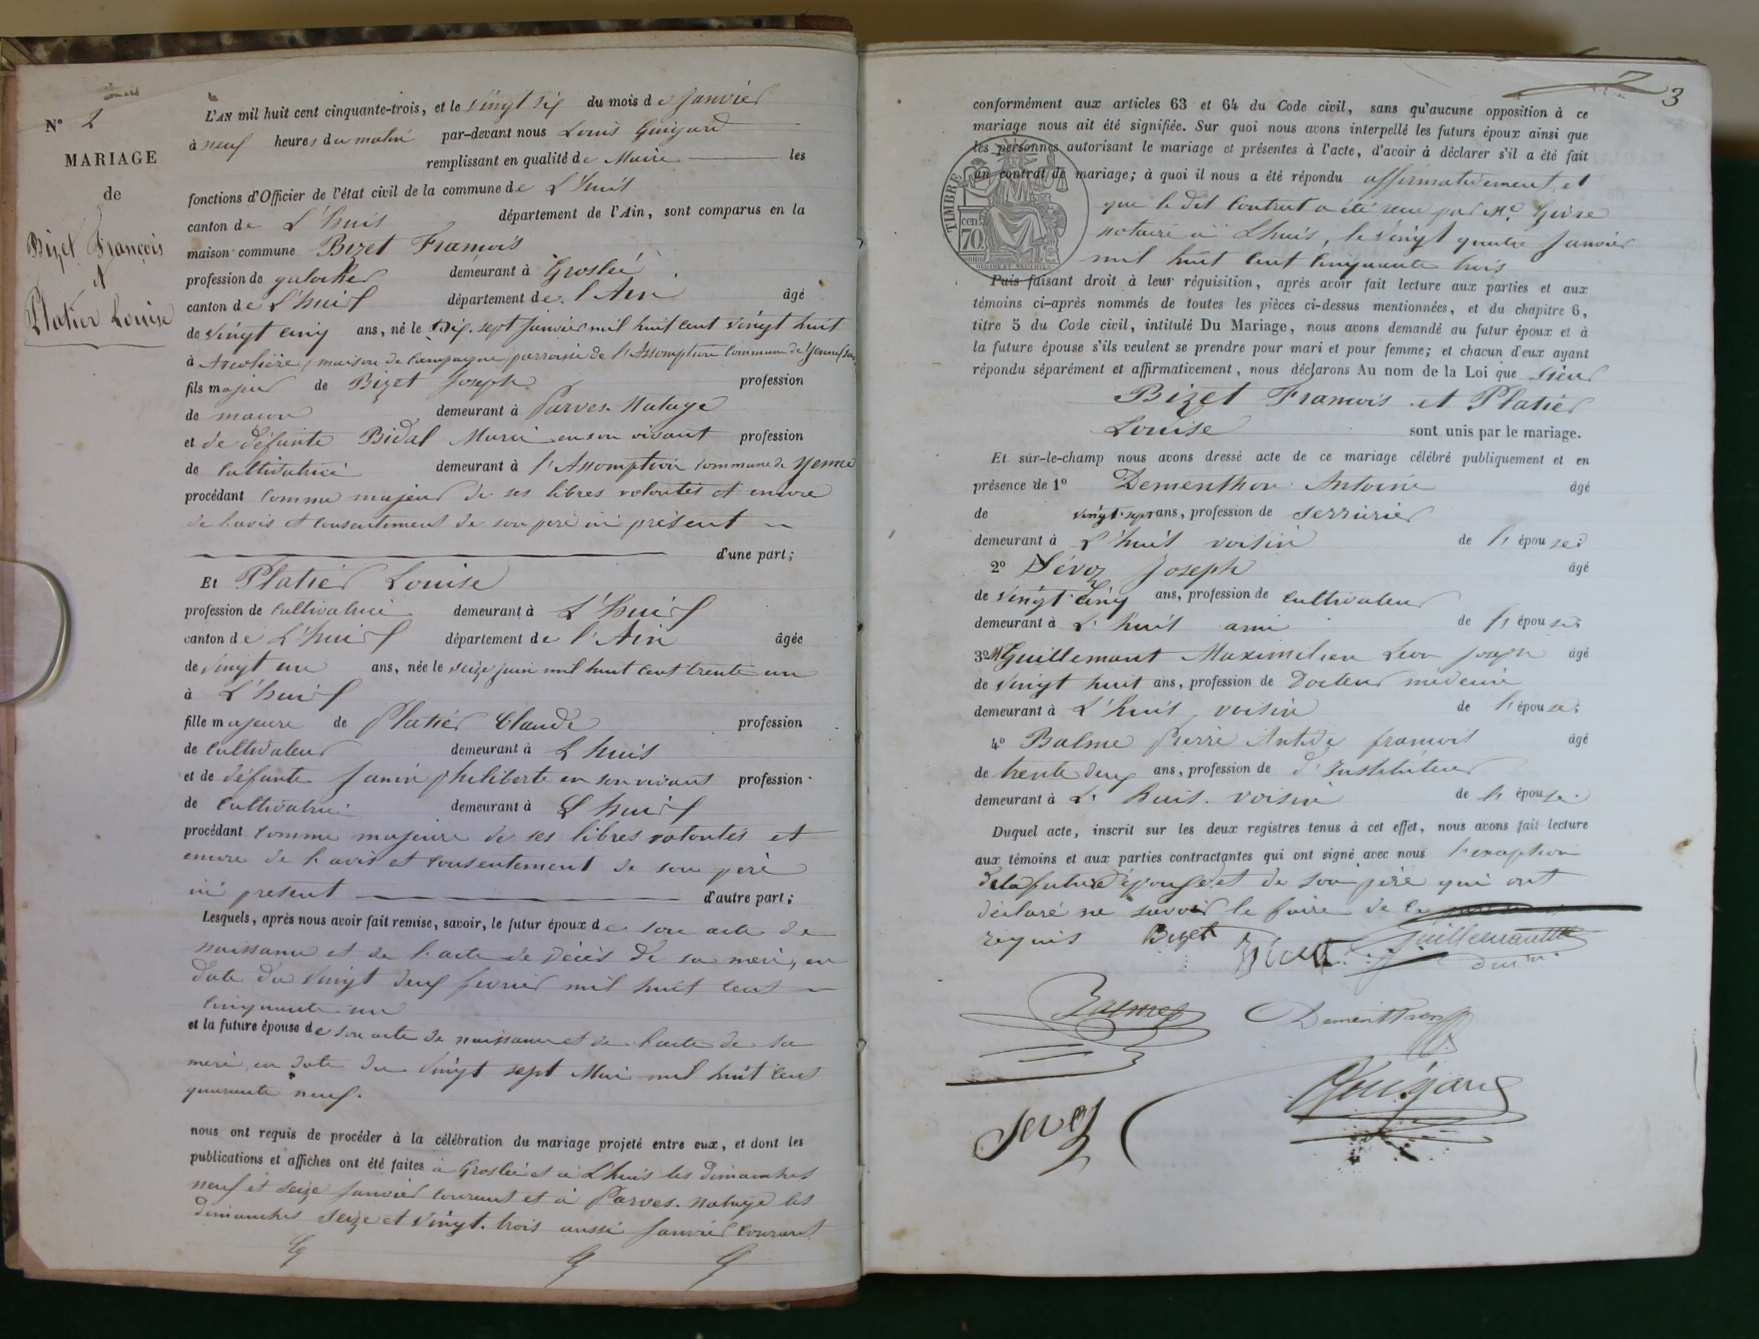 N° 2
MARIAGE
de
Bizet François
et
Platier Louise
L'AN mil huit cent cinquante-trois, et le vingt six du mois de Janvier
à neuf heures du matin par-devant nous Louis Guigard
remplissant en qualité de Maire les
fonctions d'Officier de l'état civil de la commune de L'huis
canton de L'huis département de l'Ain, sont comparus en la
maison commune Bizet François
profession de demeurant à Groslée
canton de L'huis département de l'Ain âgé
de vingt cinq ans, né le dix-sept Janvier mil huit cent vingt huit
à maison de campagne parroisse de l'Assomption commune de Yenne
fils majeur de Bizet Joseph profession
de maçon demeurant à Parves-Nattage
et de défunte Bidal Marie en son vivant profession
de cultivatrice demeurant à l'Assomption commune de Yenne
procédant comme majeur de ses libres volontés et encore
de l'avis et consentement de son père ici présent
d'une part;
Et Platier Louise
profession de cultivatrice demeurant à L'huis
canton de L'huis département de l'Ain âgée
de vingt un ans, née le seize juin mil huit cent trente un
à L'huis
fille majeure de Platier Claude profession
de cultivateur demeurant à Lhuis
et de défunte Janin philiberte en son vivant profession
de cultivatrice demeurant à Lhuis
procédant comme majeure de ses libres volontés et
encore de l'avis et consentement de son père
ici présent d'autre part;
Lesquels, après nous avoir fait remise, savoir, le futur époux de son acte de
naissance et de l'acte de décès de sa mère, en
date du vingt deux février mil huit cent
cinquante un
et la future épouse de son acte de naissance et de l'acte de sa
mère, en date du vingt sept Mai mil huit cent
quarante neuf.
nous ont requis de procéder à la célébration du mariage projeté entre eux, et dont les
publications et affiches ont été faites à Groslée et à Lhuis les dimanches
neuf et seize Janvier courant et à Parves-Nattage les
dimanches seize et vingt-trois aussi Janvier courant
3
conformément aux articles 63 et 64 du Code civil, sans qu'aucune opposition à ce
mariage nous ait été signifiée. Sur quoi nous avons interpellé les futurs époux ainsi que
les personnes autorisant le mariage et présentes à l'acte, d'avoir à déclarer s'il a été fait
un contrat de mariage; à quoi il nous a été répondu affirmativement, et
que le dit contrat a été reçu par Me
notaire à Lhuis, le vingt quatre Janvier
mil huit cent cinquante trois
TIMBRE
70
Puis faisant droit à leur réquisition, après avoir fait lecture aux parties et aux
témoins ci-après nommés de toutes les pièces ci-dessus mentionnées, et du chapitre 6,
titre 5 du Code civil, intitulé Du Mariage, nous avons demandé au futur époux et à
la future épouse s'ils veulent se prendre pour mari et pour femme; et chacun d'eux ayant
répondu séparément et affirmativement, nous déclarons Au nom de la Loi que sieur
Bizet François et Platier
Louise sont unis par le mariage.
Et sur-le-champ nous avons dressé acte de ce mariage célébré publiquement et en
présence de 1° Dementhon Antoine âgé
de vingt-sept ans, profession de serrurier
demeurant à L'huis voisin de l'épouse.
2° Sévoz Joseph âgé
de vingt cinq ans, profession de cultivateur
demeurant à L'huis ami de l'épouse.
3° Mr Guillemaut Maximilien Léon Joseph âgé
de vingt huit ans, profession de Docteur médecin
demeurant à L'huis voisin de l'épouse.
4° Balme Pierre Antide françois âgé
de trente deux ans, profession de d'Instituteur
demeurant à L'huis voisin de l'épouse.
Duquel acte, inscrit sur les deux registres tenus à cet effet, nous avons fait lecture
aux témoins et aux parties contractantes qui ont signé avec nous l'exception
de la future épouse et de son père qui ont
déclaré ne savoir le faire de ce
requis Bizet Bizet Guillemaut
Balme Dementhon
Guigard
Sevoz